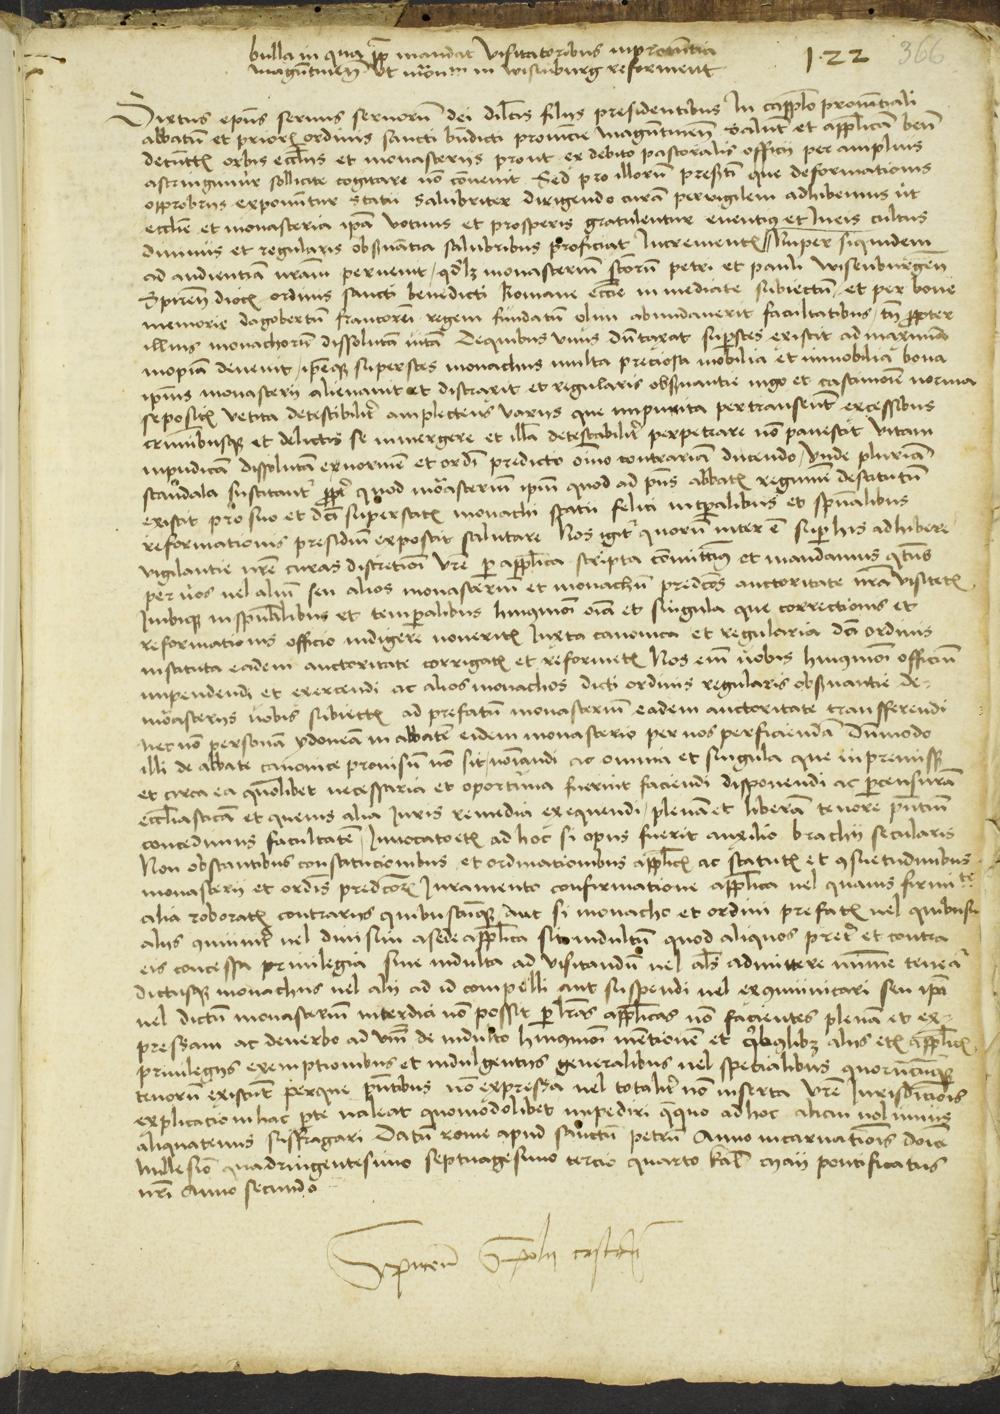 bulla in qua papa mandat visitatoribus in provintia
magūtineñ ut mōrium in wisenburg reforment
122 366
Sixtus epūs servus servorū dei dilctis filijs presidentibus In capplō provintiali
abbatū et priorū ordinis sancti bñdicti provincie magūtineñ Salutē et applicā beñ
astringimur sollicite cogitare nō convenit Sed pro illorū presītī que deformationis
opprobrijs exponūtur statu salubriter dirigendo curā pervigilem adhibemus ut
ecclīe et monasteria ipā votivis et prosperis gratulentur eventibus et In eis cultus
divinus et regularis obsūantia salubribus proficiat Incrementis Nuper siquidem
ad audientiā nrām pervenit qd lz monasteriū sctorū petri et pauli wisenburgeñ
Spireñ dioc ordinis sancti benedicti Romane ecclīe inmediate subiectū et per bone
memorie dagobertū francorū regem fundatū olim abundaverit facultatibus tn propter
illius monachorū dissolutā vitā De quibus unus dūtaxat superstes existit ad maximā
inopiā devenit ipseque superstes monachus multa preciosa mobilia et inmobilia bona
ipius monasterij alienavit et distraxit et regularis obsūantie iugo et castimonie norma
sepositis vetita detestibilitr amplectens varijs que impunita pertranseūt excessibus
criminibusque et delictis se inmergere et illa detestabilitr perpetrare nō pavescit vitam
impudicā dissolutā enormem et ordī predicto oīno contrariā ducendo unde plurima
scandala suscitantr proptr quod mōasteriū ipm quod ad pñs abbatis regimine destitutū
existit pro suo et dcti superstitis monachi statu felici in tpalibus et spūalibus
reformationis presidiū exposcit salutare Nos igitr quorū inter e super his adhibere
vigilantie nre curas discretioni vre p applica scripta cōmittimus et mandamus qtnus
per vos vel aliū seu alios monasteriū et monachū predctos auctoritate nra visitetis
Inibique in spūalibus et temporalibus huiusmōi oīa et singula que correctionis et
reformationis officio indigere noveritis Iuxta canonica et regularia dcti ordinis
instituta eadem auctoritate corrigatis et reformetis Nos eñi vobis huiusmōi officiū
impendendi et exercendi ac alios monachos dicti ordinis regularis obsūantie de
mōasterijs vobis subiectis ad prefatū monasteriū eadem auctoritate transfferendi
necnō personā ydoneā in abbatē eidem monasterio per vos perficiendā Dūmodo
illi de abbate canonice provisū nō sit noīandi ac omnia et singula que in premissis
et circa ea quolibet necessaria et oportuna fuerint faciendi disponendi ac p censurā
ecclīasticā et quevis alia Iuris remedia exequendi plenā et liberā tenore pñtium
concedimus facultatē Invocato etiā ad hoc si opus fuerit auxilio brachij secularis
Non obstantibus constitucionibus et ordinationibus applicis ac statutis et cōsuetudinibus
monasterij et ordis predctorū Iuramento confirmatione applica vel quavis firmitate
alia roboratis contrarijs quibuscūque Aut si monacho et ordini prefatis vel quibusvis
alijs cōmunitr vel divisim a sede applica sit indultū quod aliquos pretr et contra
eis concessa privilegia sive indulta ad visitandū vel als admittere minime teneātr
dictusque monachus vel alij ad id compelli aut suspendi vel excōmunicari seu ipā
vel dictū monasteriū interdici nō possit p lras applicas nō facientes plenā et ex-
pressam ac de verbo ad verbū de indulto huiusmōi mentionem et quibuslibz alijs etiā applicis
privilegijs exemptionibus et indulgentijs generalibus vel specialibus quorūcūque
tenorū existant perque pñtibus nō expressa vel totalitr nō inserta vre Iurisdictionis
explicatio in hac parte valeat quomōdolibet impediri queque ad hoc alicui nolumus
aliquatenus suffragari Datū rome apud sanctū petrū Anno incarnatiōis dnīce
Millesīo quadringentesimo septuagesimo tercio quarto kal maij pontificatus
nri Anno secundo